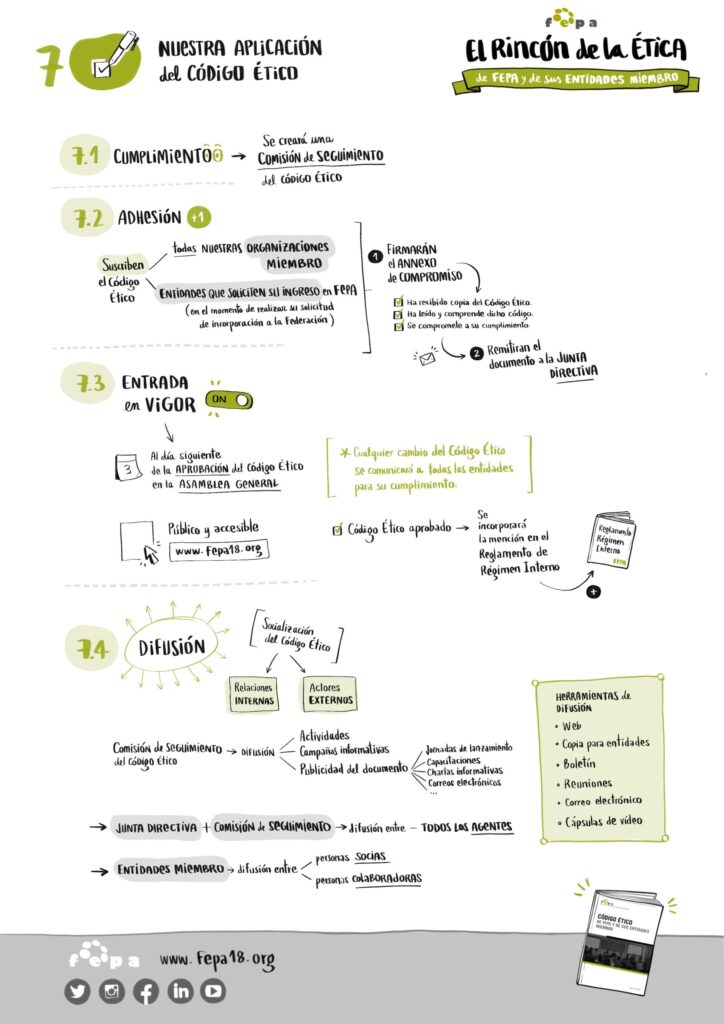 7
NUESTRA APLICACIÓN
del CÓDIGO ÉTICO
fepa
EL RINCÓN de la ÉTICA
de FEPA y de sus ENTIDADES MIEMBRO
7.1 CUMPLIMIENTO
Se creará una
COMISIÓN de SEGUIMIENTO
del CÓDIGO ÉTICO
7.2 ADHESIÓN +1
Suscriben
el Código
Ético
todas NUESTRAS ORGANIZACIONES
MIEMBRO
ENTIDADES QUE SOLICITEN SU INGRESO en FEPA
(en el momento de realizar su solicitud
de incorporación a la Federación)
1 FIRMARÁN
el ANNEXO
de COMPROMISO
Ha recibido copia del Código Ético.
Ha leído y comprende dicho código.
Se compromete a su cumplimiento.
2 Remitiran el
documento a la JUNTA
DIRECTIVA
7.3 ENTRADA
en VIGOR
ON
3
Al día siguiente
de la APROBACIÓN del Código Ético
en la ASAMBLEA GENERAL
* Cualquier cambio del Código Ético
se comunicará a todas las entidades
para su cumplimiento.
Público y accesible
www.fepa18.org
Código Ético aprobado
Se
incorporará
la mención en el
Reglamento de
Régimen Interno
+
Reglamento
Régimen
Interno
FEPA
7.4 DIFUSIÓN
Socialización
del Código Ético
Relaciones
INTERNAS
Actores
EXTERNOS
Comisión de SEGUIMIENTO
del CÓDIGO ÉTICO
DIFUSIÓN
Actividades
Campañas informativas
Publicidad del documento
Jornadas de lanzamiento
Capacitaciones
Charlas informativas
Correos electrónicos
...
HERRAMIENTAS de
DIFUSIÓN
• Web
• Copia para entidades
• Boletín
• Reuniones
• Correo electrónico
• Cápsulas de vídeo
JUNTA DIRECTIVA + COMISIÓN de SEGUIMIENTO → difusión entre – TODOS LOS AGENTES
ENTIDADES MIEMBRO → difusión entre
personas SOCIAS
personas COLABORADORAS
CÓDIGO ÉTICO
DE FEPA Y DE SUS ENTIDADES
MIEMBRO
fepa
www.fepa18.org